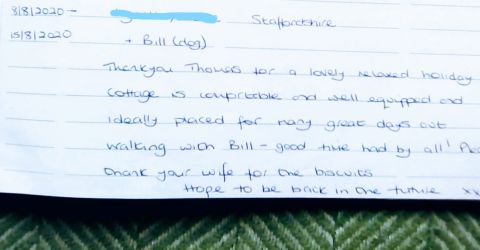 8/8/2020 - Staffordshire
15/8/2020 + Bill (dog)
Thankyou Thomas for a lovely relaxed holiday
Cottage is comfortable and well equipped and
ideally placed for many great days out
walking with Bill - good time had by all!
thank your wife for the biscuits
Hope to be back in the future xx